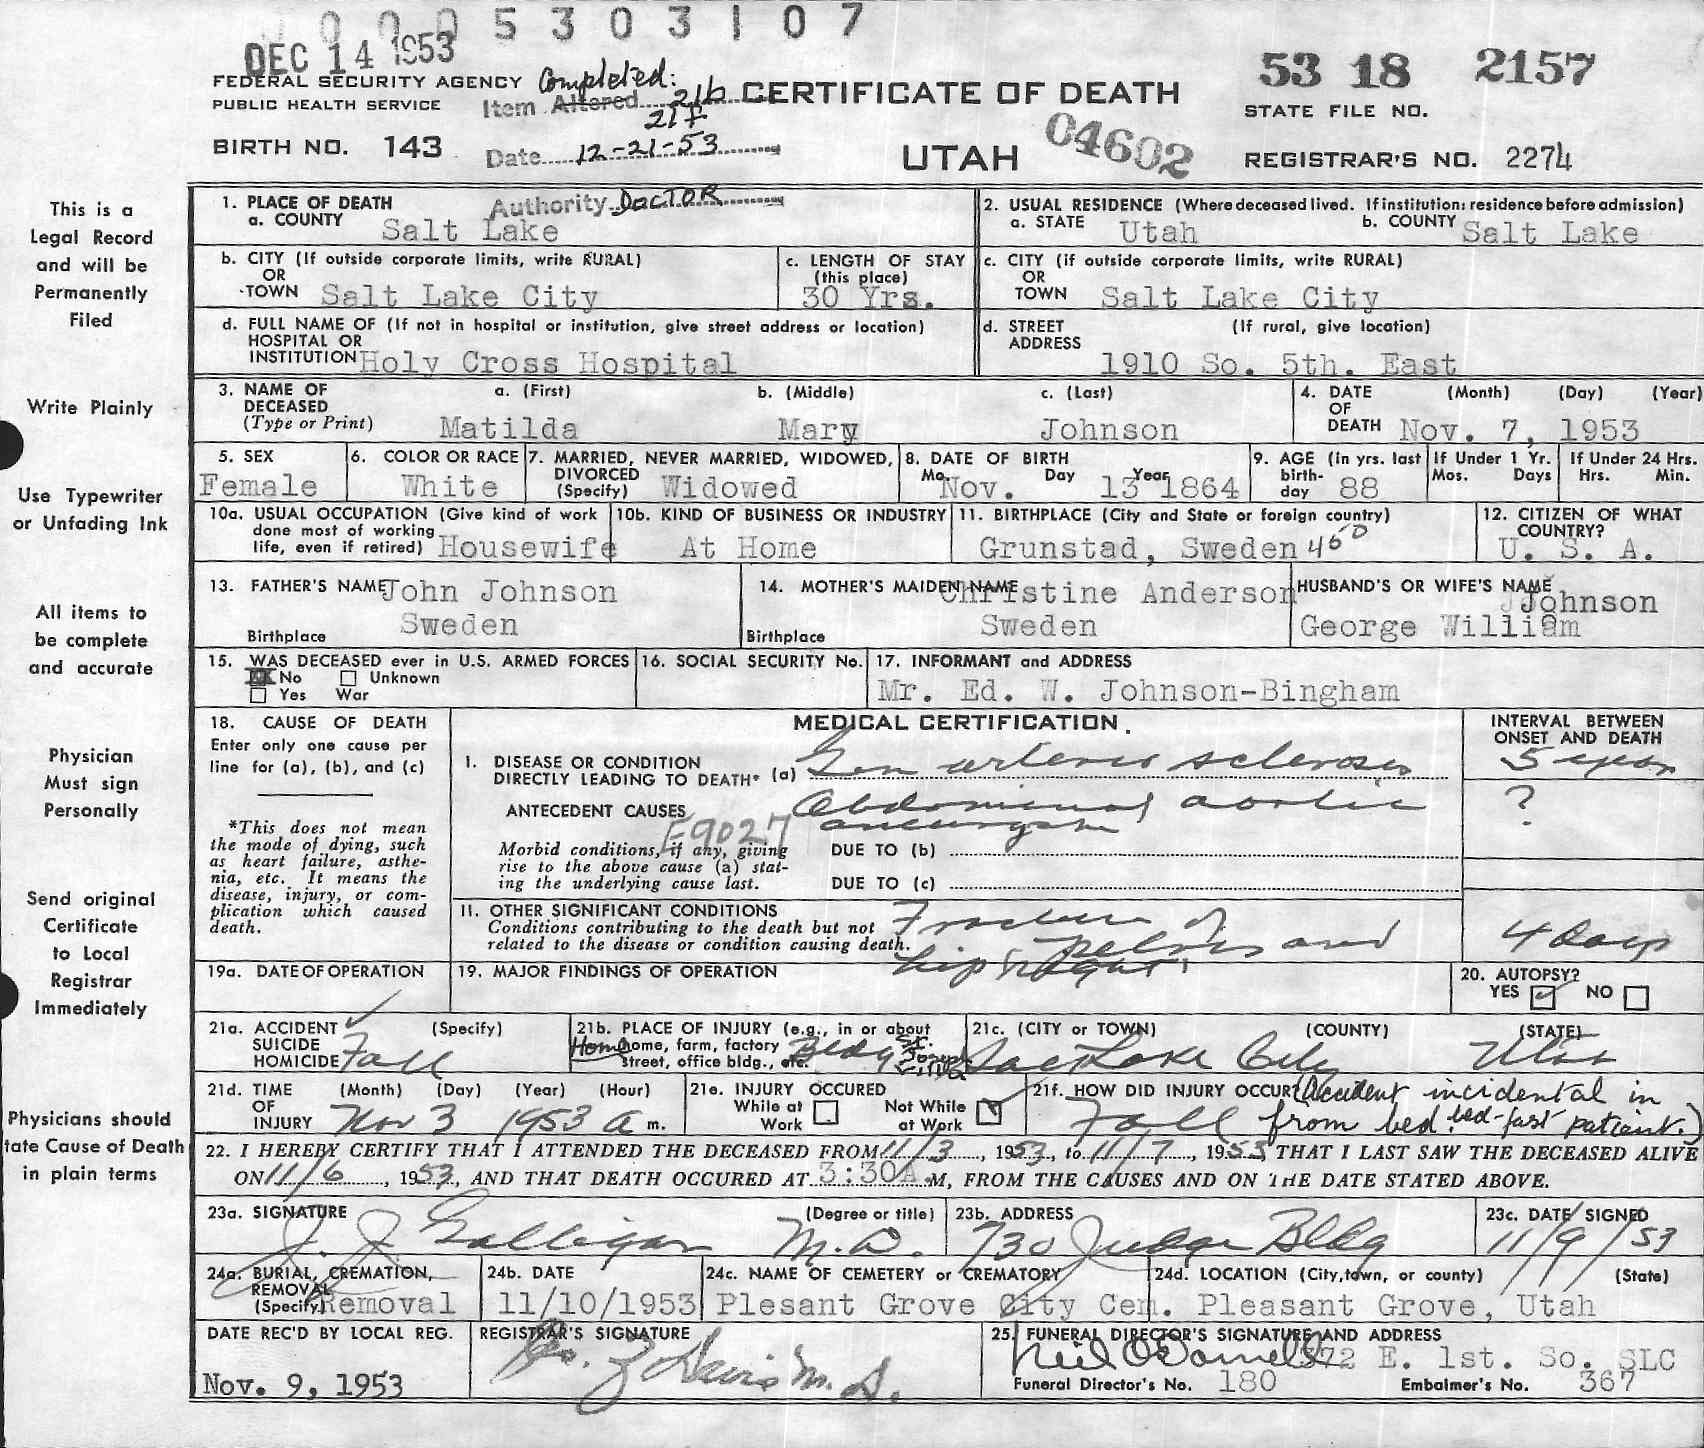 0005303107
DEC 14 1953
53 18 2157
FEDERAL SECURITY AGENCY Completed:
PUBLIC HEALTH SERVICE Item Altered 21b CERTIFICATE OF DEATH
21f
STATE FILE NO.
BIRTH NO. 143 Date 12-21-53 UTAH 04602 REGISTRAR'S NO. 2274
This is a
Legal Record
and will be
Permanently
Filed
Write Plainly
Use Typewriter
or Unfading Ink
All items to
be complete
and accurate
Physician
Must sign
Personally
Send original
Certificate
to Local
Registrar
Immediately
Physicians should
tate Cause of Death
in plain terms
1. PLACE OF DEATH Authority DOCTOR
a. COUNTY Salt Lake
2. USUAL RESIDENCE (Where deceased lived. If institution: residence before admission)
a. STATE Utah b. COUNTY Salt Lake
b. CITY (If outside corporate limits, write RURAL)
OR
TOWN Salt Lake City
c. LENGTH OF STAY
(this place)
30 Yrs.
c. CITY (if outside corporate limits, write RURAL)
OR
TOWN Salt Lake City
d. FULL NAME OF (If not in hospital or institution, give street address or location)
HOSPITAL OR
INSTITUTION Holy Cross Hospital
d. STREET (If rural, give location)
ADDRESS
1910 So. 5th. East
3. NAME OF a. (First) b. (Middle) c. (Last)
DECEASED
(Type or Print) Matilda Mary Johnson
4. DATE (Month) (Day) (Year)
OF
DEATH Nov. 7, 1953
5. SEX
Female
6. COLOR OR RACE
White
7. MARRIED, NEVER MARRIED, WIDOWED,
DIVORCED
(Specify) Widowed
8. DATE OF BIRTH
Mo. Day Year
Nov. 13 1864
9. AGE (in yrs. last
birth-
day 88
If Under 1 Yr.
Mos. Days
If Under 24 Hrs.
Hrs. Min.
10a. USUAL OCCUPATION (Give kind of work
done most of working
life, even if retired) Housewife
10b. KIND OF BUSINESS OR INDUSTRY
At Home
11. BIRTHPLACE (City and State or foreign country)
Grunstad, Sweden 460
12. CITIZEN OF WHAT
COUNTRY?
U. S. A.
13. FATHER'S NAME John Johnson
Birthplace Sweden
14. MOTHER'S MAIDEN NAME Christine Anderson
Birthplace Sweden
HUSBAND'S OR WIFE'S NAME
Johnson
George William
15. WAS DECEASED ever in U.S. ARMED FORCES
No Unknown
Yes War
16. SOCIAL SECURITY No.
17. INFORMANT and ADDRESS
Mr. Ed. W. Johnson-Bingham
18. CAUSE OF DEATH
Enter only one cause per
line for (a), (b), and (c)
*This does not mean
the mode of dying, such
as heart failure, asthe-
nia, etc. It means the
disease, injury, or com-
plication which caused
death.
MEDICAL CERTIFICATION.
INTERVAL BETWEEN
ONSET AND DEATH
1. DISEASE OR CONDITION
DIRECTLY LEADING TO DEATH* (a) Gen arterio sclerosis 5 years
ANTECEDENT CAUSES Abdominal aortic ?
aneurysm
E9027
Morbid conditions, if any, giving
rise to the above cause (a) stat-
ing the underlying cause last.
DUE TO (b)
DUE TO (c)
11. OTHER SIGNIFICANT CONDITIONS
Conditions contributing to the death but not
related to the disease or condition causing death.
Fracture of
pelvis and
hip right 4 Days
19a. DATE OF OPERATION
19. MAJOR FINDINGS OF OPERATION
20. AUTOPSY?
YES NO
21a. ACCIDENT (Specify)
SUICIDE
HOMICIDE Fall
21b. PLACE OF INJURY (e.g., in or about
home, farm, factory
street, office bldg., etc. Bldg St. Joseph Villa
21c. (CITY or TOWN) (COUNTY) (STATE)
Salt Lake City Utah
21d. TIME (Month) (Day) (Year) (Hour)
OF
INJURY Nov 3 1953 a m.
21e. INJURY OCCURED
While at Work
Not While at Work
21f. HOW DID INJURY OCCUR? (Accident incidental in
Fall from bed. bed-fast patient.)
22. I HEREBY CERTIFY THAT I ATTENDED THE DECEASED FROM 11/3, 1953, to 11/7, 1953 THAT I LAST SAW THE DECEASED ALIVE
ON 11/6, 1953, AND THAT DEATH OCCURED AT 3:30A.M, FROM THE CAUSES AND ON THE DATE STATED ABOVE.
23a. SIGNATURE (Degree or title)
J. J. Galligan M.D.
23b. ADDRESS
730 Judge Bldg
23c. DATE SIGNED
11/9/53
24a. BURIAL, CREMATION,
REMOVAL
(Specify) Removal
24b. DATE
11/10/1953
24c. NAME OF CEMETERY or CREMATORY
Plesant Grove City Cem.
24d. LOCATION (City, town, or county) (State)
Pleasant Grove, Utah
DATE REC'D BY LOCAL REG.
Nov. 9, 1953
REGISTRAR'S SIGNATURE
Davis M.D.
25. FUNERAL DIRECTOR'S SIGNATURE AND ADDRESS
Neil O'Donnell 372 E. 1st. So. SLC
Funeral Director's No. 180 Embalmer's No. 367